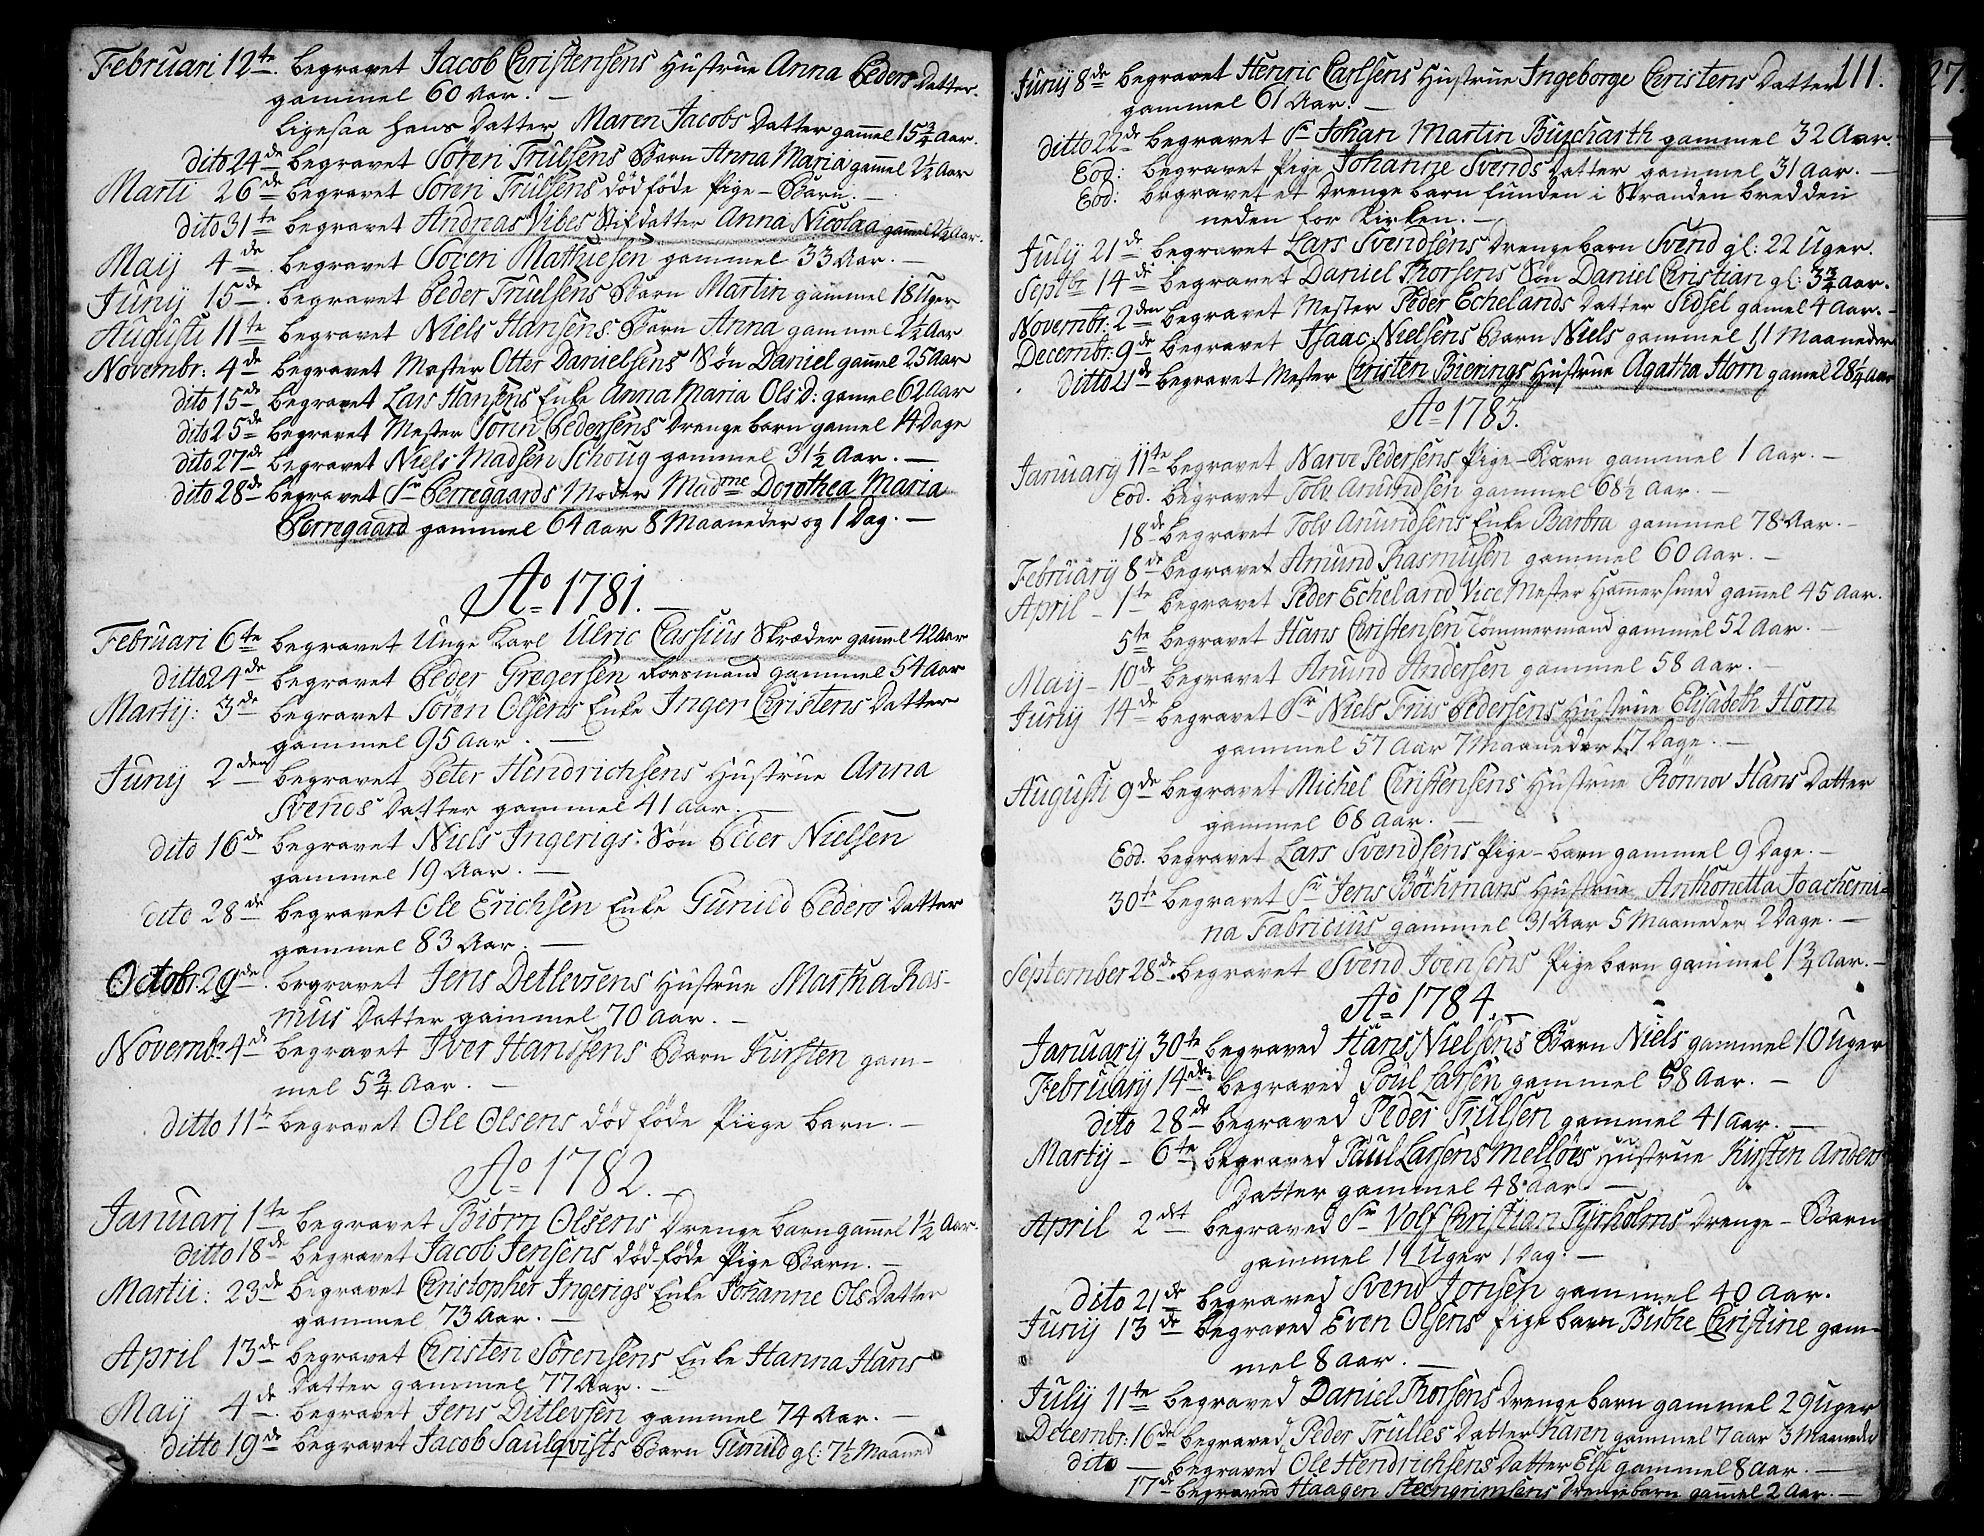 Februari 12te begravet Jacob Christensens Hustrue Anna Peders Datter
gammel 60 Aar. —
ligesaa hans Datter Maren Jacobs Datter gammel 15¾ Aar.
dito 24de begravet Sören Trulsens Barn Anna Maria gammel 2½ Aar
Marti 26de begravet Sören Trulsens död föde Pige-Barn. —
dito 31te begravet Andreas Vibes Stifdatter Anna Nicolaa gammel 2½ Aar.
Maij 4de begravet Soren Mathiesen gammel 33 Aar. —
Junij 15de begravet Peder Truelsens Barn Martin gammel 18 Uger
Augusti 11te begravet Niels Hansens Barn Anna gammel 2½ Aar
Novembr: 4de begravet Mester Otter Danielsens Søn Daniel gammel 25 Aar
dito 15de begravet Lars Hansens Enke Anna Maria Ols D: gamel 62 Aar
dito 25de begravet Mester Soren Pedersens Drenge barn gamel 14 Dage
dito 27de begravet Niels Madsen Schoug gammel 31½ Aar. —
dito 28de begravet Sr Perregaards Moder Madme Dorothea Maria
Perregaard gammel 64 Aar 8 Maaneder og 1 Dag. —
Ao 1781. —
Februari 6te begravet Unge Karl Ulric Cassius Skræder gammel 42 Aar
ditto 24de begravet Peder Gregersen Roersmand gammel 54 Aar
Martij: 3de begravet Sören Olsens Enke Inger Christens Datter
gammel 95 Aar. —
Junij 2den begravet Peter Hendrichsens Hustrue Anna
Svends Datter gammel 41 Aar. —
dito 16de begravet Niels Ingerigs: Søn Peder Nielsen
gammel 19 Aar. —
dito 28de begravet Ole Erichsen Enke Gunild Peders Datter
gammel 83 Aar. —
Octobr: 29de begravet Jens Detlevsens Hustrue Martha Ras-
mus Datter gammel 70 Aar. —
Novembr 4de begravet Iver Hanssens Barn Kirsten gam-
mel 5¾ Aar. —
ditto 11te begravet Ole Olsens död föde Piige barn. —
Ao 1782. —
Januari 1te begravet Biørn Olsens Drenge barn gammel 1½ Aar.
ditto 18de begravet Jacob Jensens död-föde Pige Barn. —
Martii: 23de begravet Christopher Ingerigs Enke Johanne Ols Datter
gammel 73 Aar. —
April 13de begravet Christen Sörensens Enke Hanna Hans
Datter gammel 77 Aar. —
Maij 4de begravet Jens Ditlevsen gammel 74 Aar. —
ditto 19de begravet Jacob Saulqvists Barn Gunild gl: 7½ Maaned
111.
Junij 8de begravet Henric Carlsens Hustrue Ingeborge Christens Datter
gammel 61 Aar. —
ditto 22de begravet Sr Johan Martin Bucharth gammel 32 Aar.
Eod: begravet Pige Johanne Svends Datter gammel 31 Aar. —
Eod: begravet et Drenge barn funden i Stranden bredden
neden for Kirken. —
July 21de begravet Lars Svendsens Drenge barn Svend gl: 22 Uger.
Septbr 14de begravet Daniel Thorsens Søn Daniel Christian gl: 3¾ Aar.
Novembr: 2den begravet Mester Peder Echelands Datter Sidsel gamel 4 Aar. —
Decembr: 9de begravet Isaac Nielsens Barn Niels gammel 11 Maaneder
Ditto 21de begravet Mester Christen Bierings Hustrue Agatha Horn gamel 28¼ Aar
Ao 1783.
January 11te begravet Narve Pedersens Pige-Barn gammel 1 Aar. —
Eod. begravet Tolv Amundsen gammel 68½ Aar. —
18de begravet Tolv Amundsens Enke Barbra gammel 78 Aar. —
February 8de begravet Amund Rasmusen gammel 60 Aar. —
April - 1te begravet Peder Echeland Vice Mester Hamersmed gammel 45 Aar.
5te begravet Hans Christensen Tömmermand gammel 52 Aar. —
May - 10de begravet Amund Andersen gammel 58 Aar. —
Junij 14de begravet Sr Niels Friis Pedersens Hustrue Elisabeth Horn
gammel 57 Aar 7 Maaneder 17 Dage. —
Augusti 9de begravet Michel Christensens Hustrue Rönnov Hans Datter
gammel 68 Aar. —
Eod. begravet Lars Svendsens Pige-barn gammel 9 Dage. —
30te begravet Sr Jens Böchmans Hustrue Anthonetta Joachemi-
na Fabricius gammel 31 Aar 5 Maaneder 2 Dage. —
September 28de begravet Svend Ivensens Pige barn gammel 1¾ Aar. —
Ao 1784. —
January 30te begraved Hans Nielsens Barn Niels gammel 10 Uger
February 14de begraved Poul Larsen gammel 58 Aar. —
dito 28de begraved Peder Trulsen gammel 41 Aar. —
Martij - 6te begraved Paul Larsens Melløes Hustrue Kirsten Anders
Datter gammel 48 Aar —
April 2det begraved Sr Volf Christian Tyrholms Drenge-Barn
gammel 11 Uger 1 Dag. —
dito 21de begraved Svend Jonsen gammel 40 Aar.
Junij 13de begraved Even Olsens Pige barn Birthe Christine gam-
mel 8 Aar. —
July 11te begraved Daniel Thorsens Drenge barn gammel 29 Uger
Decembr: 16de begraved Peder Trulles Datter Karen gammel 7 Aar 3 Maaneder
dito — begraved Ole Hendrichsens Datter Else gammel 8 Aar. —
17de begraved Haagen Steengrimsens Drengebarn gammel 2 Aar. —
27.